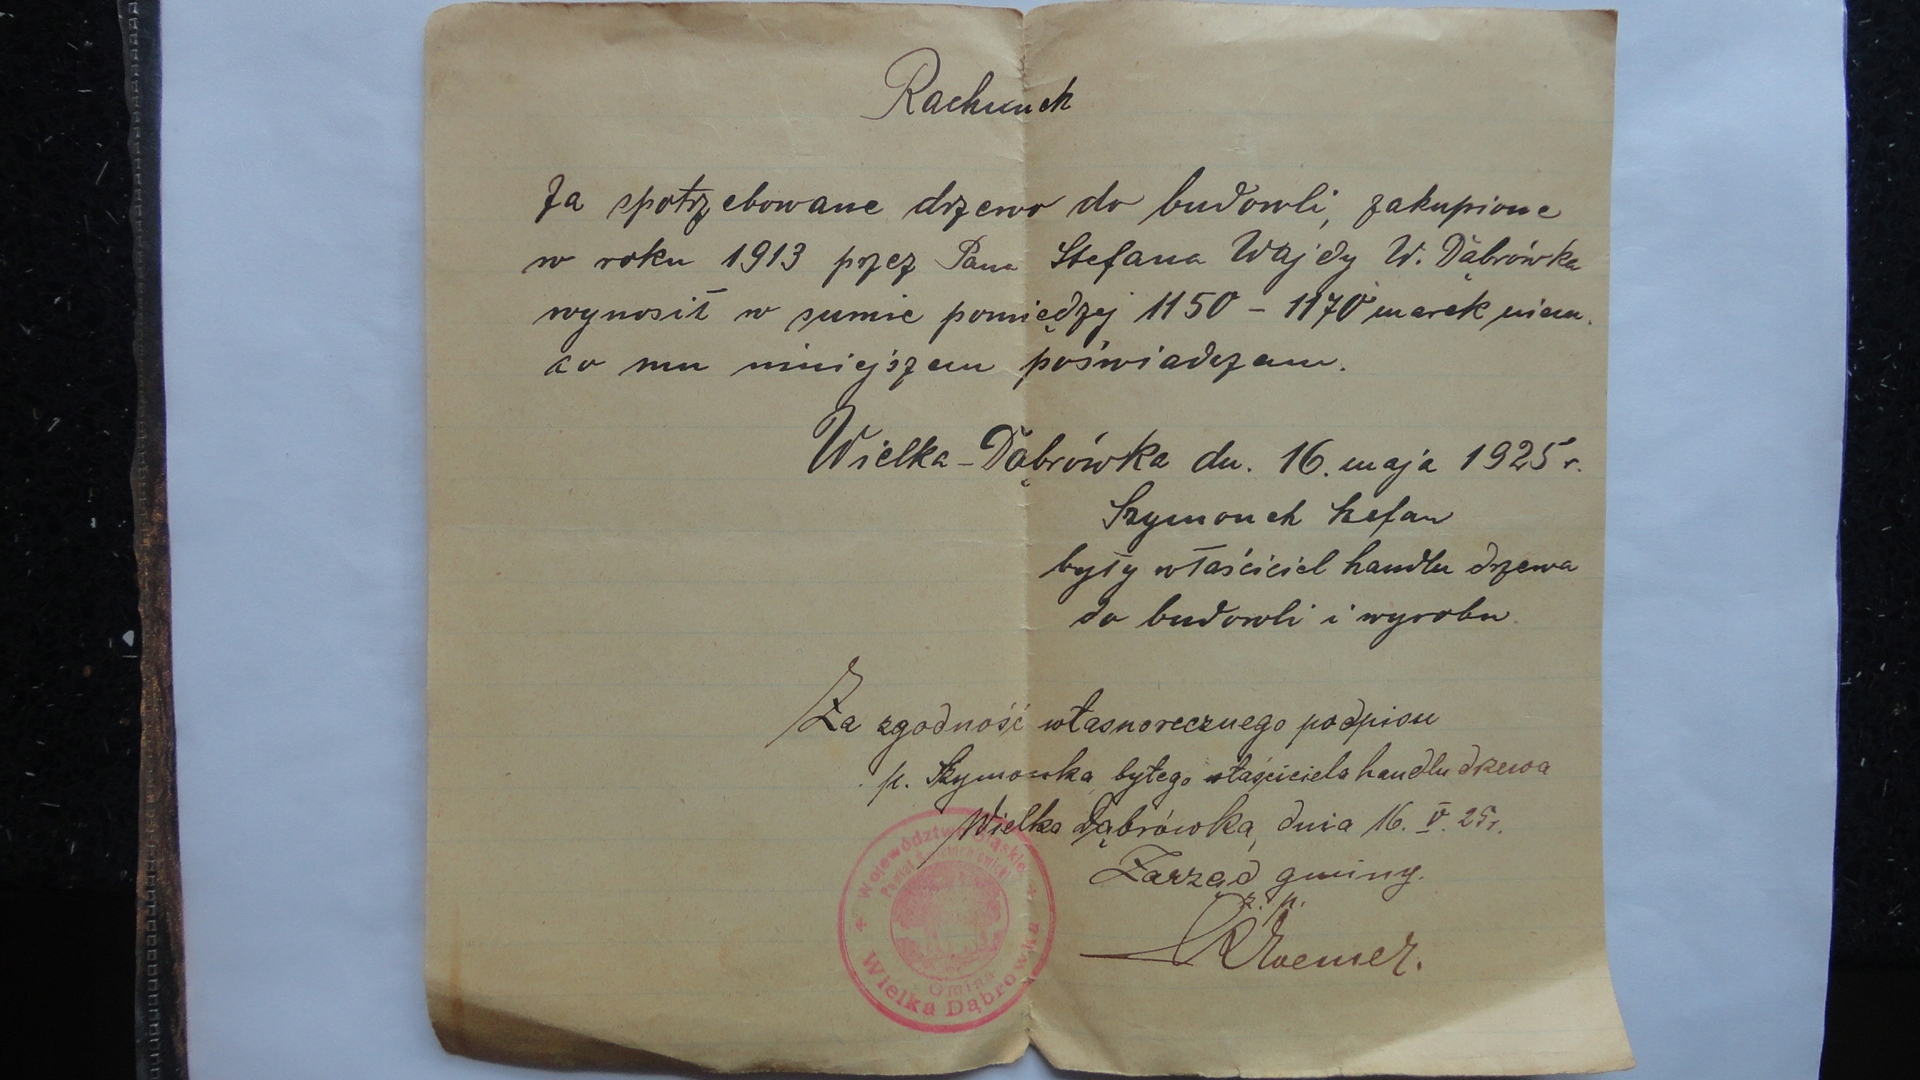 Rachunek
Za spotrzebowane drzewo do budowli, zakupione
w roku 1913 przez Pana Stefana Wajdy W. Dąbrówka
wynosił w sumie pomiędzej 1150 - 1170 marek niem.
co mu niniejszem poświadczam.
Wielka-Dąbrówka dn. 16. maja 1925 r.
Szymonek Stefan
były właściciel handlu drzewa
do budowli i wyrobu
Za zgodność własnoręcznego podpisu
p. Szymonka byłego właściciela handlu drzewa
Wielka Dąbrówka, dnia 16. V. 25r.
Zarząd gminy.
z. p.
Województwo Śląskie
Powiat Świętochłowicki
Gmina
Wielka Dąbrówka